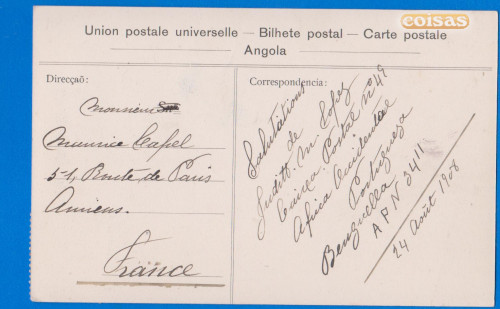 coisas
Union postale universelle — Bilhete postal — Carte postale
Angola
Direcção:
Monsieur
Maurice Capel
51, Route de Paris
Amiens.
France
Correspondencia:
Salutations
de
Judith. M. Lopez
Caixa Postal nº 49
Africa Occidental
Portugueza
Benguella
A P N 3411
24 Août 1908